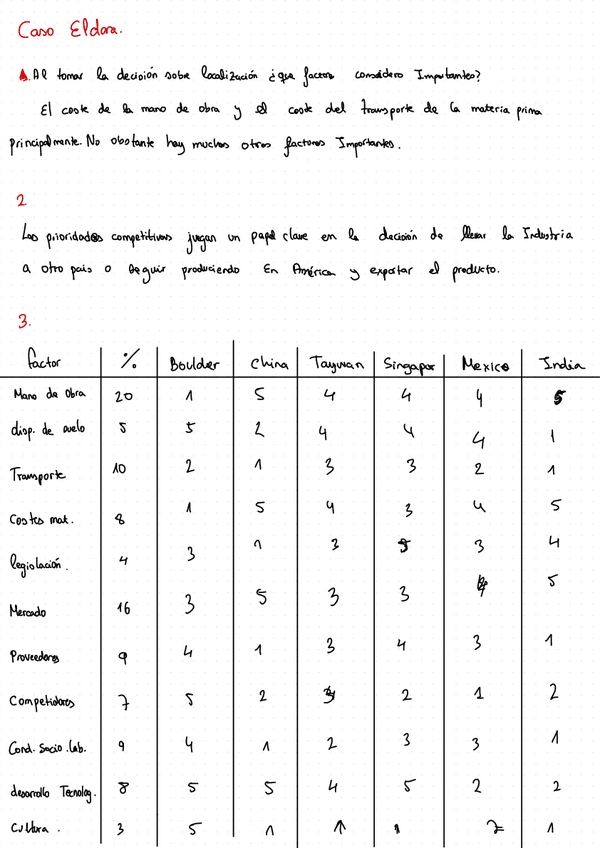 Caso Eldora.
1. Al tomar la decisión sobre localización ¿que factores considero Importantes?
El coste de la mano de obra y el coste del transporte de la materia prima
principalmente. No obstante hay muchos otros factores Importantes.
2
Las prioridades competitivas juegan un papel clave en la decisión de llevar la Industria
a otro pais o seguir produciendo En América y exportar el producto.
3.
factor % Boulder China Taywan Singapur Mexico India
Mano de Obra 20 1 5 4 4 4 5
disp. de suelo 5 5 2 4 4 4 1
Transporte 10 2 1 3 3 2 1
Costes mat. 8 1 5 4 3 4 5
legislación. 4 3 1 3 3 4
Mercado 16 3 5 3 3 5
Proveedores 9 4 1 3 4 3 1
Competidores 7 5 2 2 1 2
Cond. Socio.lab. 9 4 1 2 3 3 1
desarrollo Tecnolog. 8 5 5 4 5 2 2
Cultura. 3 5 1 1 1